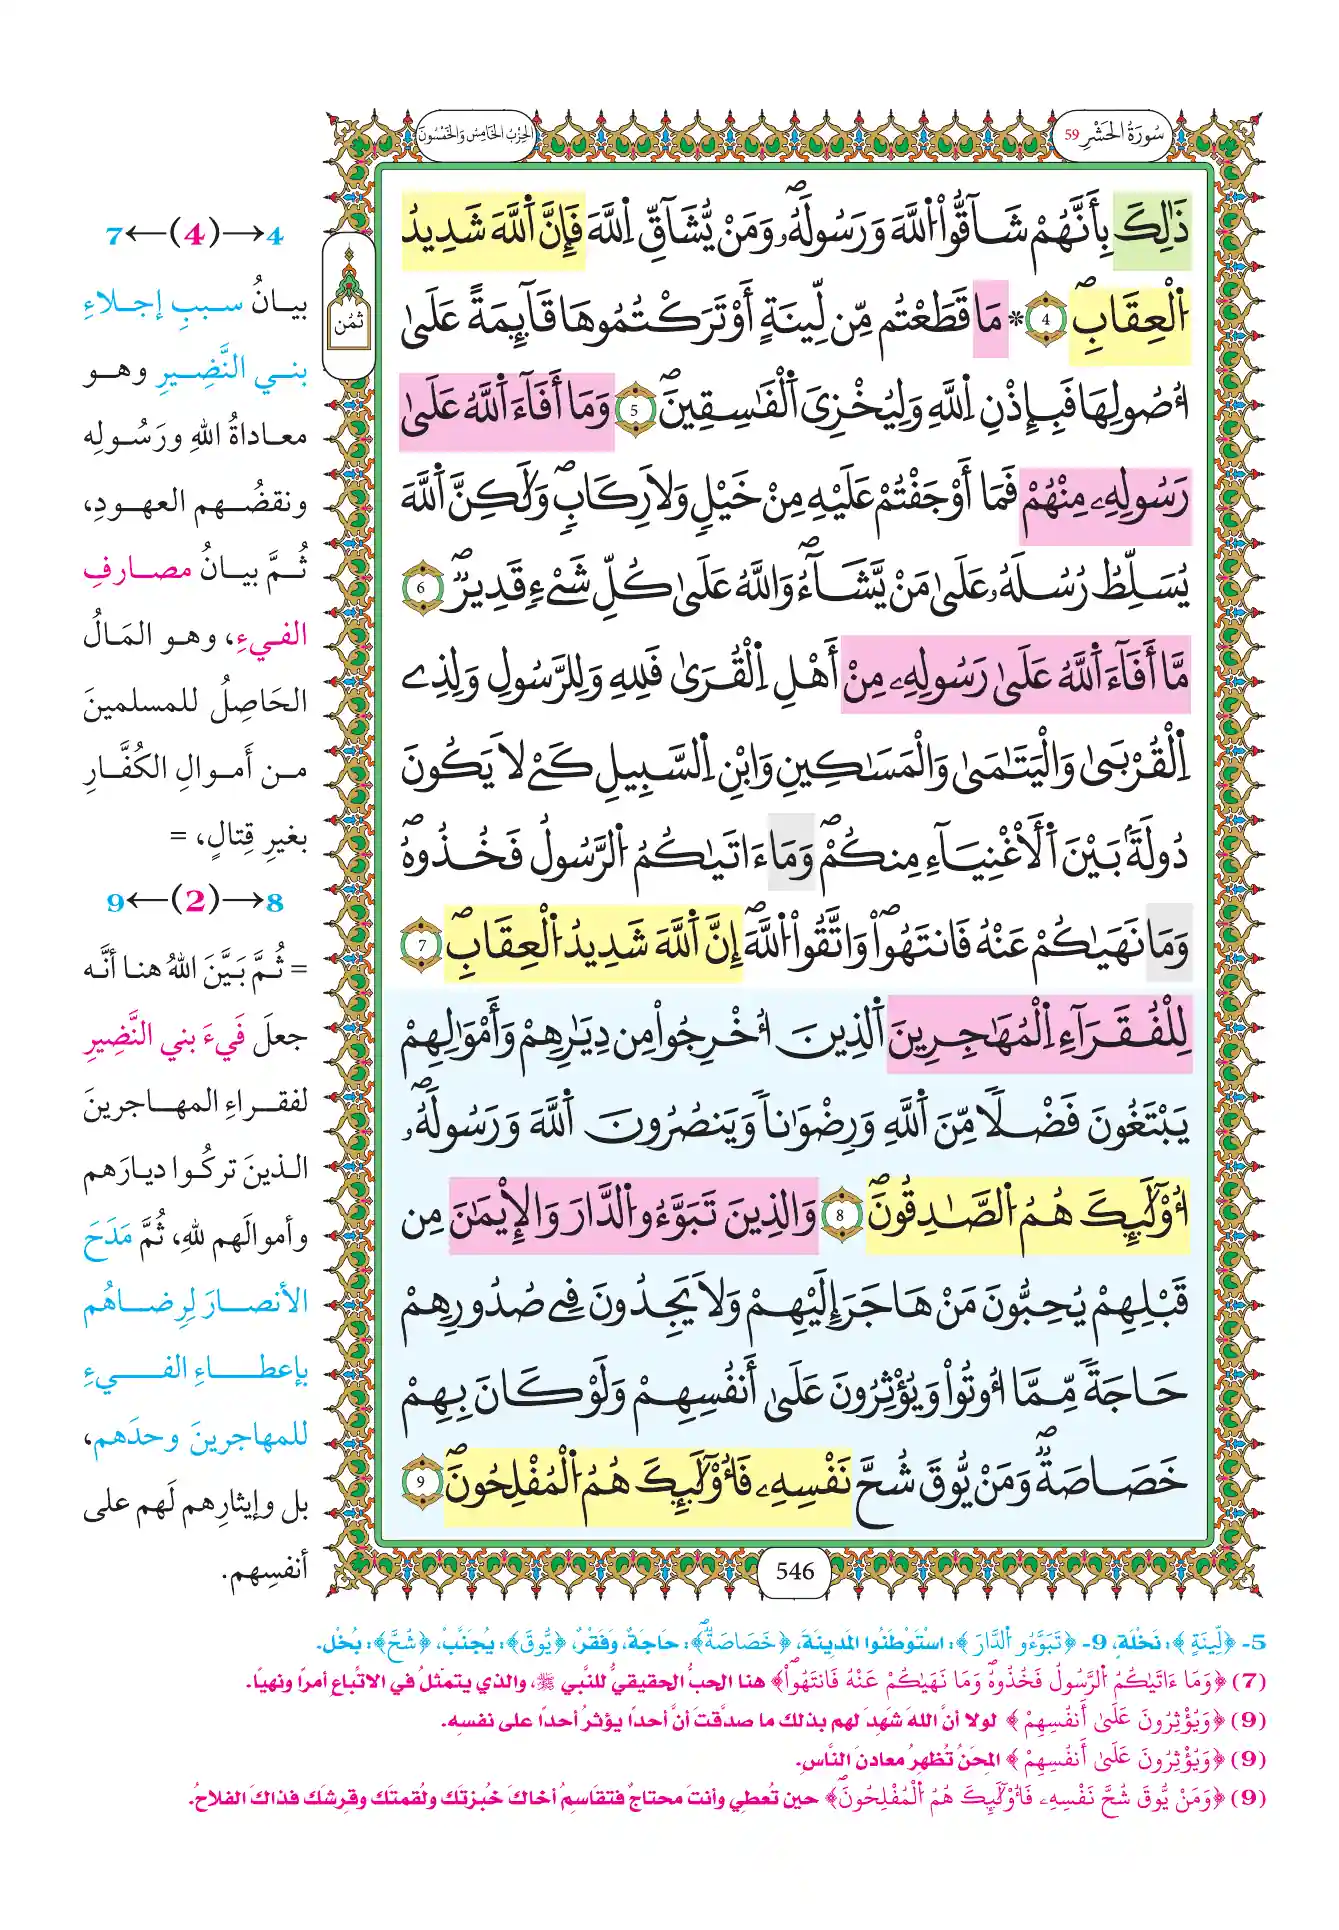 سُورَةُ الحَشْرِ 59
الحِزْبُ الخَامِسُ وَالخَمْسُونَ
ذَٰلِكَ بِأَنَّهُمْ شَآقُّواْ اُللَّهَ وَرَسُولَهُۥۖ وَمَنْ يُّشَآقِّ اِللَّهَ فَإِنَّ اَللَّهَ شَدِيدُ
اُلْعِقَابِۖ 4 * مَا قَطَعْتُم مِّن لِّينَةٍ أَوْ تَرَكْتُمُوهَا قَآئِمَةً عَلَىٰ
أُصُولِهَا فَبِإِذْنِ اِللَّهِ وَلِيُخْزِيَ اَلْفَٰسِقِينَۖ 5 وَمَا أَفَآءَ اَللَّهُ عَلَىٰ
رَسُولِهِۦ مِنْهُمْ فَمَا أَوْجَفْتُمْ عَلَيْهِ مِنْ خَيْلٍ وَلَا رِكَابٍۖ وَلَٰكِنَّ اَللَّهَ
يُسَلِّطُ رُسُلَهُۥ عَلَىٰ مَنْ يَّشَآءُۖ وَاللَّهُ عَلَىٰ كُلِّ شَےْءٍ قَدِيرٌۖ 6
مَّا أَفَآءَ اَللَّهُ عَلَىٰ رَسُولِهِۦ مِنْ أَهْلِ اِلْقُرَىٰ فَلِلهِ وَلِلرَّسُولِ وَلِذِے
اِلْقُرْبَىٰ وَالْيَتَٰمَىٰ وَالْمَسَٰكِينِ وَابْنِ اِلسَّبِيلِ كَےْ لَا يَكُونَ
دُولَةَۢ بَيْنَ اَلْأَغْنِيَآءِ مِنكُمْۖ وَمَا ءَاتَيٰكُمُ اُلرَّسُولُ فَخُذُوهُۖ
وَمَا نَهَيٰكُمْ عَنْهُ فَانتَهُواْۖ وَاتَّقُواْ اُللَّهَۖ إِنَّ اَللَّهَ شَدِيدُ اُلْعِقَابِۖ 7
لِلْفُقَرَآءِ اِلْمُهَٰجِرِينَ اَلذِينَ أُخْرِجُواْ مِن دِيَٰرِهِمْ وَأَمْوَٰلِهِمْ
يَبْتَغُونَ فَضْلًا مِّنَ اَللَّهِ وَرِضْوَٰناً وَيَنصُرُونَ اَللَّهَ وَرَسُولَهُۥۖ
أُوْلَٰٓئِكَ هُمُ اُلصَّٰدِقُونَۖ 8 وَالذِينَ تَبَوَّءُو اُلدَّارَ وَالْإِيمَٰنَ مِن
قَبْلِهِمْ يُحِبُّونَ مَنْ هَاجَرَ إِلَيْهِمْ وَلَا يَجِدُونَ فِے صُدُورِهِمْ
حَاجَةً مِّمَّا أُوتُواْ وَيُؤْثِرُونَ عَلَىٰ أَنفُسِهِمْ وَلَوْ كَانَ بِهِمْ
خَصَاصَةٌۖ وَمَنْ يُّوقَ شُحَّ نَفْسِهِۦ فَأُوْلَٰٓئِكَ هُمُ اُلْمُفْلِحُونَۖ 9
546
ثُمُن
4→(4)←7
بيانُ سببِ إجلاءِ
بني النَّضِيرِ وهو
معاداةُ اللهِ ورَسُولِه
ونقضُهم العهودِ،
ثُمَّ بيانُ مصارفِ
الفيءِ، وهو المَالُ
الحَاصِلُ للمسلمينَ
من أَموالِ الكُفَّارِ
بغيرِ قِتالٍ، =
8→(2)←9
= ثُمَّ بَيَّنَ اللهُ هنا أنَّه
جعلَ فَيءَ بني النَّضِيرِ
لفقراءِ المهاجرينَ
الذينَ تركُوا ديارَهم
وأموالَهم للهِ، ثُمَّ مَدَحَ
الأنصارَ لِرِضاهُم
بإعطاءِ الفيءِ
للمهاجرينَ وحدَهم،
بل وإيثارِهم لَهم على
أنفسِهم.
5- ﴿لِّينَةٍ﴾: نَخْلَةٍ، 9- ﴿تَبَوَّءُو اُلدَّارَ﴾: اسْتَوْطَنُوا المَدِينَةَ، ﴿خَصَاصَةٌۖ﴾: حَاجَةٌ، وَفَقْرٌ، ﴿يُّوقَ﴾: يُجَنَّبْ، ﴿شُحَّ﴾: بُخْل.
(7) ﴿وَمَا ءَاتَيٰكُمُ اُلرَّسُولُ فَخُذُوهُۖ وَمَا نَهَيٰكُمْ عَنْهُ فَانتَهُواْۖ﴾ هنا الحبُّ الحقيقيُّ للنَّبي ﷺ، والذي يتمثلُ في الاتِّباعِ أمرًا ونهيًا.
(9) ﴿وَيُؤْثِرُونَ عَلَىٰ أَنفُسِهِمْ﴾ لولا أنَّ اللهَ شَهِدَ لهم بذلك ما صدَّقتَ أنَّ أحدًا يؤثرُ أحدًا على نفسِه.
(9) ﴿وَيُؤْثِرُونَ عَلَىٰ أَنفُسِهِمْ﴾ المِحَنُ تُظهِرُ معادنَ النَّاسِ.
(9) ﴿وَمَنْ يُّوقَ شُحَّ نَفْسِهِۦ فَأُوْلَٰٓئِكَ هُمُ اُلْمُفْلِحُونَۖ﴾ حين تُعطِي وأنتَ محتاجٌ فتقاسِمُ أخاكَ خُبزتَكَ ولُقمتَكَ وقرِشَكَ فذاكَ الفلاحُ.